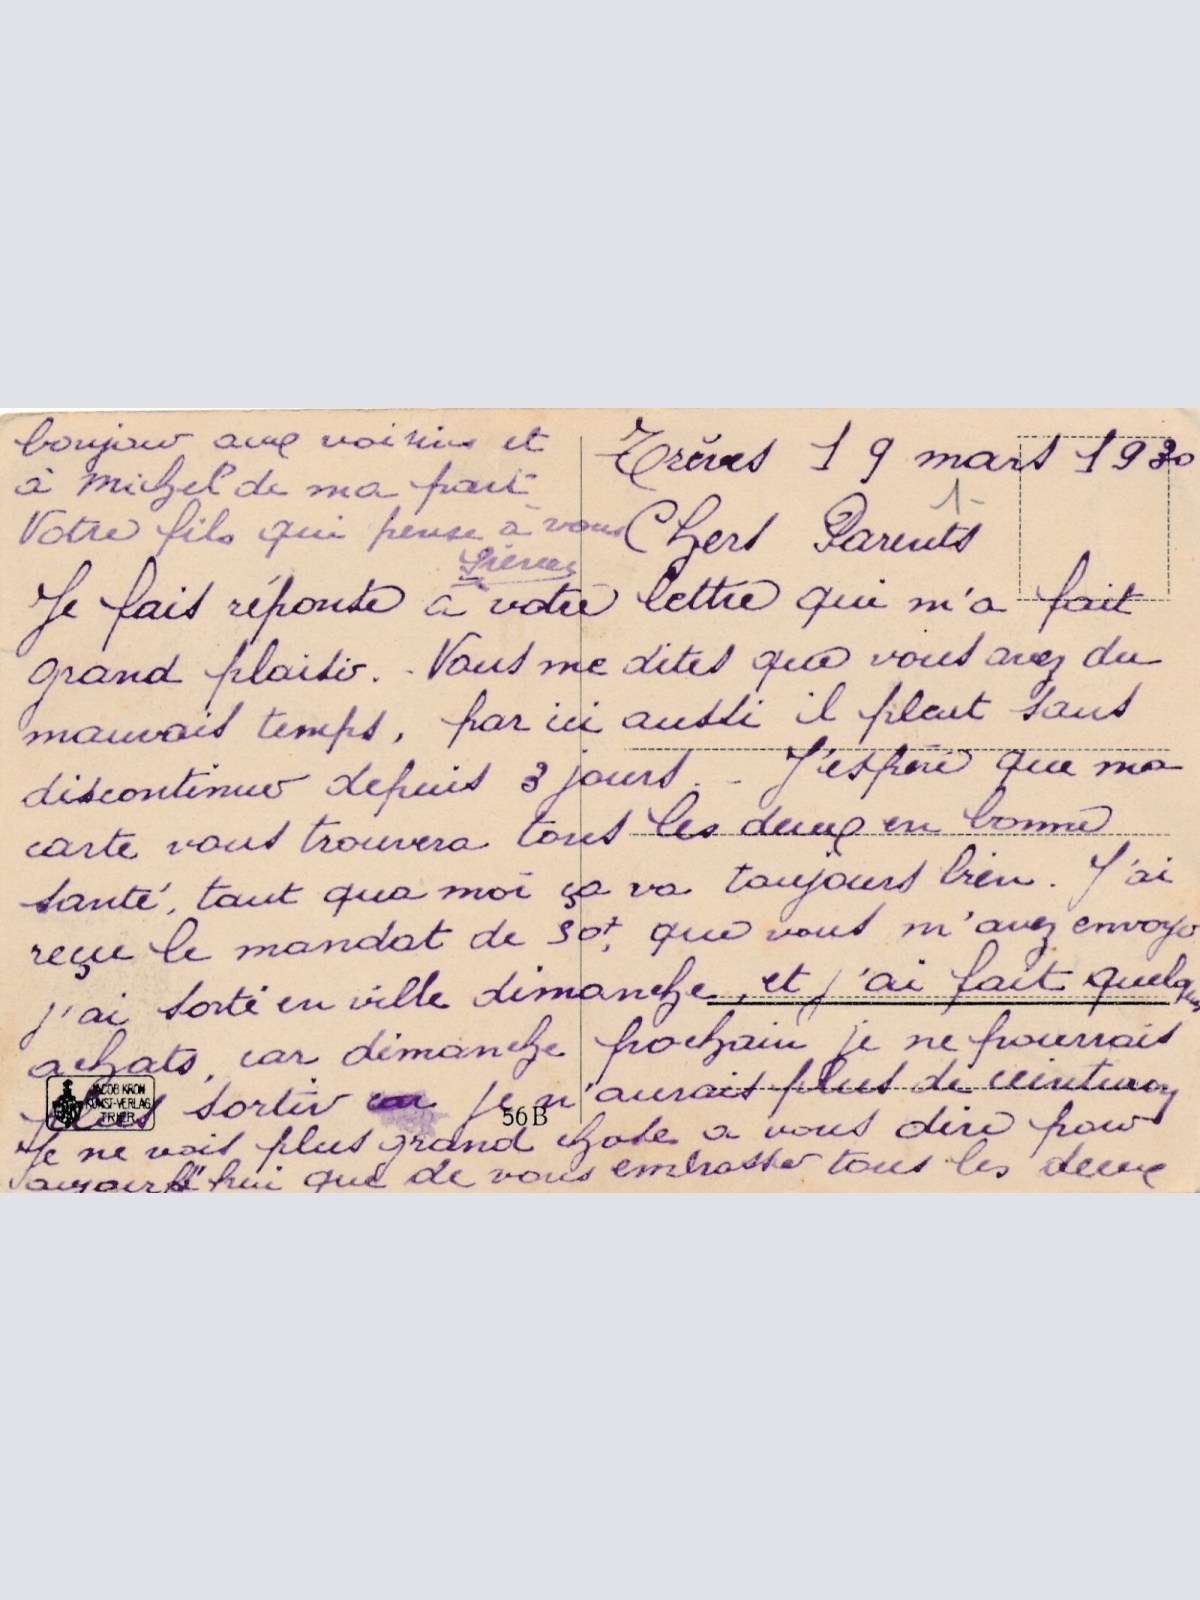 Trèves 19 mars 1930
1-
Chers Parents
Je fais réponse à votre lettre qui m'a fait
grand plaisir. - Vous me dites que vous avez du
mauvais temps, par ici aussi il pleut sans
discontinuer depuis 3 jours. - J'espère que ma
carte vous trouvera tous les deux en bonne
santé, taut qua moi ça va toujours bien. J'ai
reçu le mandat de 50f, que vous m'avez envoyé
j'ai sorté en ville dimanche, et j'ai fait quelques
achats, car dimanche prochain je ne pourrais
plus sortir car je n'aurais plus de
Je ne vois plus grand chose a vous dire pour
aujourd'hui que de vous embrasser tous les deux
bonjour aux voisins et
à Michel de ma part
Votre fils qui pense à vous
JACOB KRON
KUNST-VERLAG
TRIER
56B